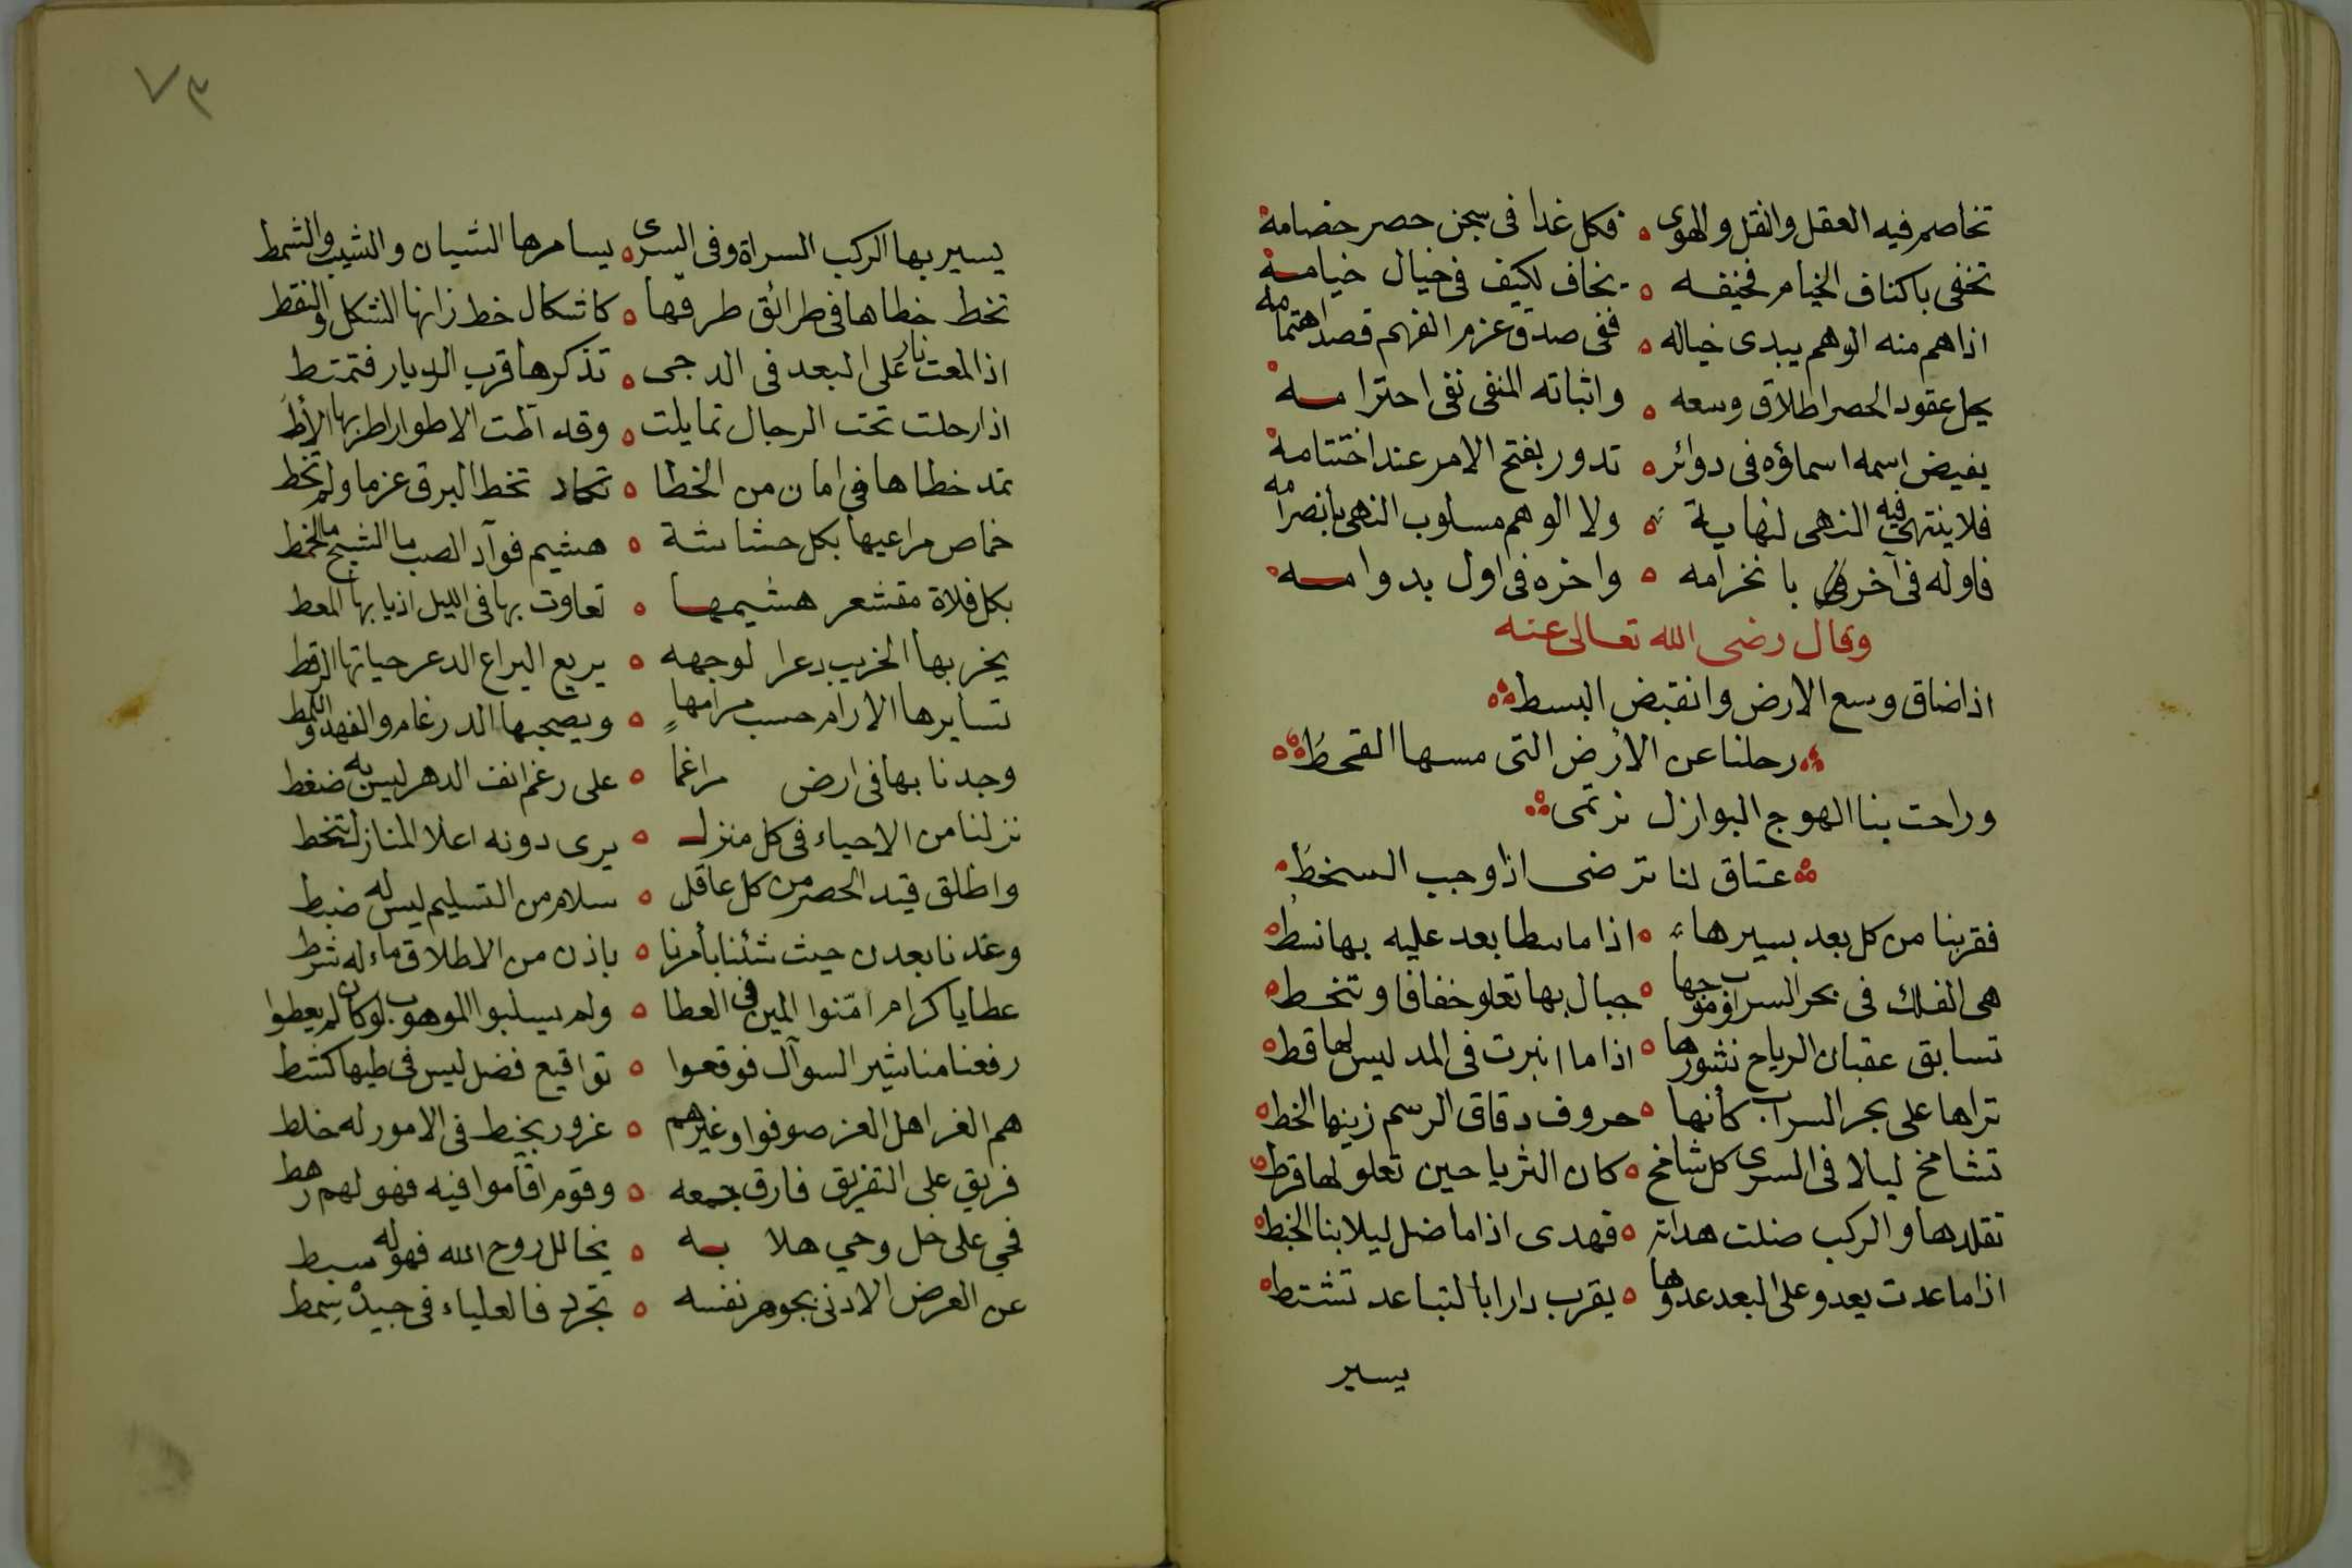 تخاصم فيه العقل والنقل والهوى ه فكل غدا فى سجن حصر خصامه
تخفى باكناف الخيام فخيفه ه يخاف لكيف فى خيال خيامه
اذا هم منه الوهم يبدى خياله ه ففى صدق عزم الفهم قصد اهتمامه
يحل عقود الحصر اطلاق وسعه ه واثباته المنفى نفى احترامه
يفيض اسمه اسماؤه فى دوائر ه تدور بفتح الامر عند اختتامه
فلا ينتهى فيه النهى لنهاية ه ولا الوهم مسلوب النهى بانصرامه
فاوله فى آخر بانخرامه ه واخره فى اول بدوامه
وقال رضى الله تعالى عنه
اذا ضاق وسع الارض وانقبض البسط
رحلنا عن الارض التى مسها القحط
وراحت بنا الهوج البوازل نرتمى
عتاق لنا ترضى اذا وجب السخط
فقربنا من كل بعد بسيرها ه اذا ما سطا بعد عليه بها نسط
هى الفلك فى بحر السراب وموجها ه جبال بها تعلو خفافا وتنخط
تسابق عقبان الرياح نشورها ه اذا ما انبرت فى المد ليس لها قط
تراها على بحر السراب كأنها ه حروف دقاق الرسم زينها الخط
تشامخ ليالا فى السرى كل شامخ ه كان الثريا حين تعلو لها قرط
تقلدها والركب ضلت هداته ه فهدى اذا ما ضل ليلا بنا الخبط
اذا ما عدت يعدو على البعد عدوها ه يقرب دارا بالتباعد تشتط
يسير
٧٣
يسير بها الركب السراة وفى السرى ه يسامرها الشبان والشيب والشمط
تخط خطاها فى طرائق طرقها ه كاشكال خط زانها الشكل والنقط
اذا لمعت نار على البعد فى الدجى ه تذكرها قرب الديار فتمتط
اذا رحلت تحت الرحال تمايلت ه وقد أطت الاطوار اطربها الأط
تمد خطاها فى امان من الخطا ه تكاد تخط البرق عزما ولم تخط
خماص مراعيها بكل حشاشة ه هشيم فوآد الصب ما الشيح ما الخمط
بكل فلاة مقشعر هشيمها ه تعاوت بها فى الليل اذيابها المعط
يخر بها الخريب دعرا لوجهه ه يريع اليراع الدعر حياتها الرقط
تسايرها الارام حسب مرامها ه ويصحبها الدرغام والفهد واللمط
وجدنا بها فى ارض مراغما ه على رغم انف الدهر ليس به ضغط
نزلنا من الاحياء فى كل منزل ه يرى دونه اعلا المنازل تنخط
واطلق قيد الحصر من كل عاقل ه سلام من التسليم ليس له ضبط
وعدنا بعدن حيث شئنا بأمرنا ه باذن من الاطلاق ماء له شرط
عطايا كرام امّنوا المين فى العطا ه ولم يسلبوا الموهوب لو كان لم يعطوا
رفعنا مناشير السوآل فوقعوا ه تواقيع فضل ليس فى طيها كشط
هم الغر اهل العز صوفوا وغيرهم ه غرور يخبط فى الامور له خلط
فريق على التفريق فارق جمعه ه وقوم اقاموا فيه فهو لهم رهط
فحي على خل وحي هلا به ه يخالل روح الله فهو له سبط
عن العرض الادنى بجوهر نفسه ه تجرد فالعلياء فى جيدْ سِمط